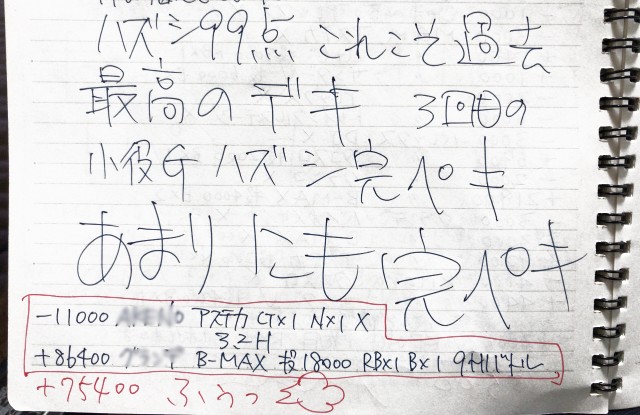 ハズシ99点 これこそ過去
最高のデキ 3回もの
小役G ハズシ完ペキ
あまりにも完ペキ
-11000 アステカ CT×1 N×1 X
32H
+86400 B-MAX 投18000 RB×1 B×1 9Hバトル
+75400 ふぅっ